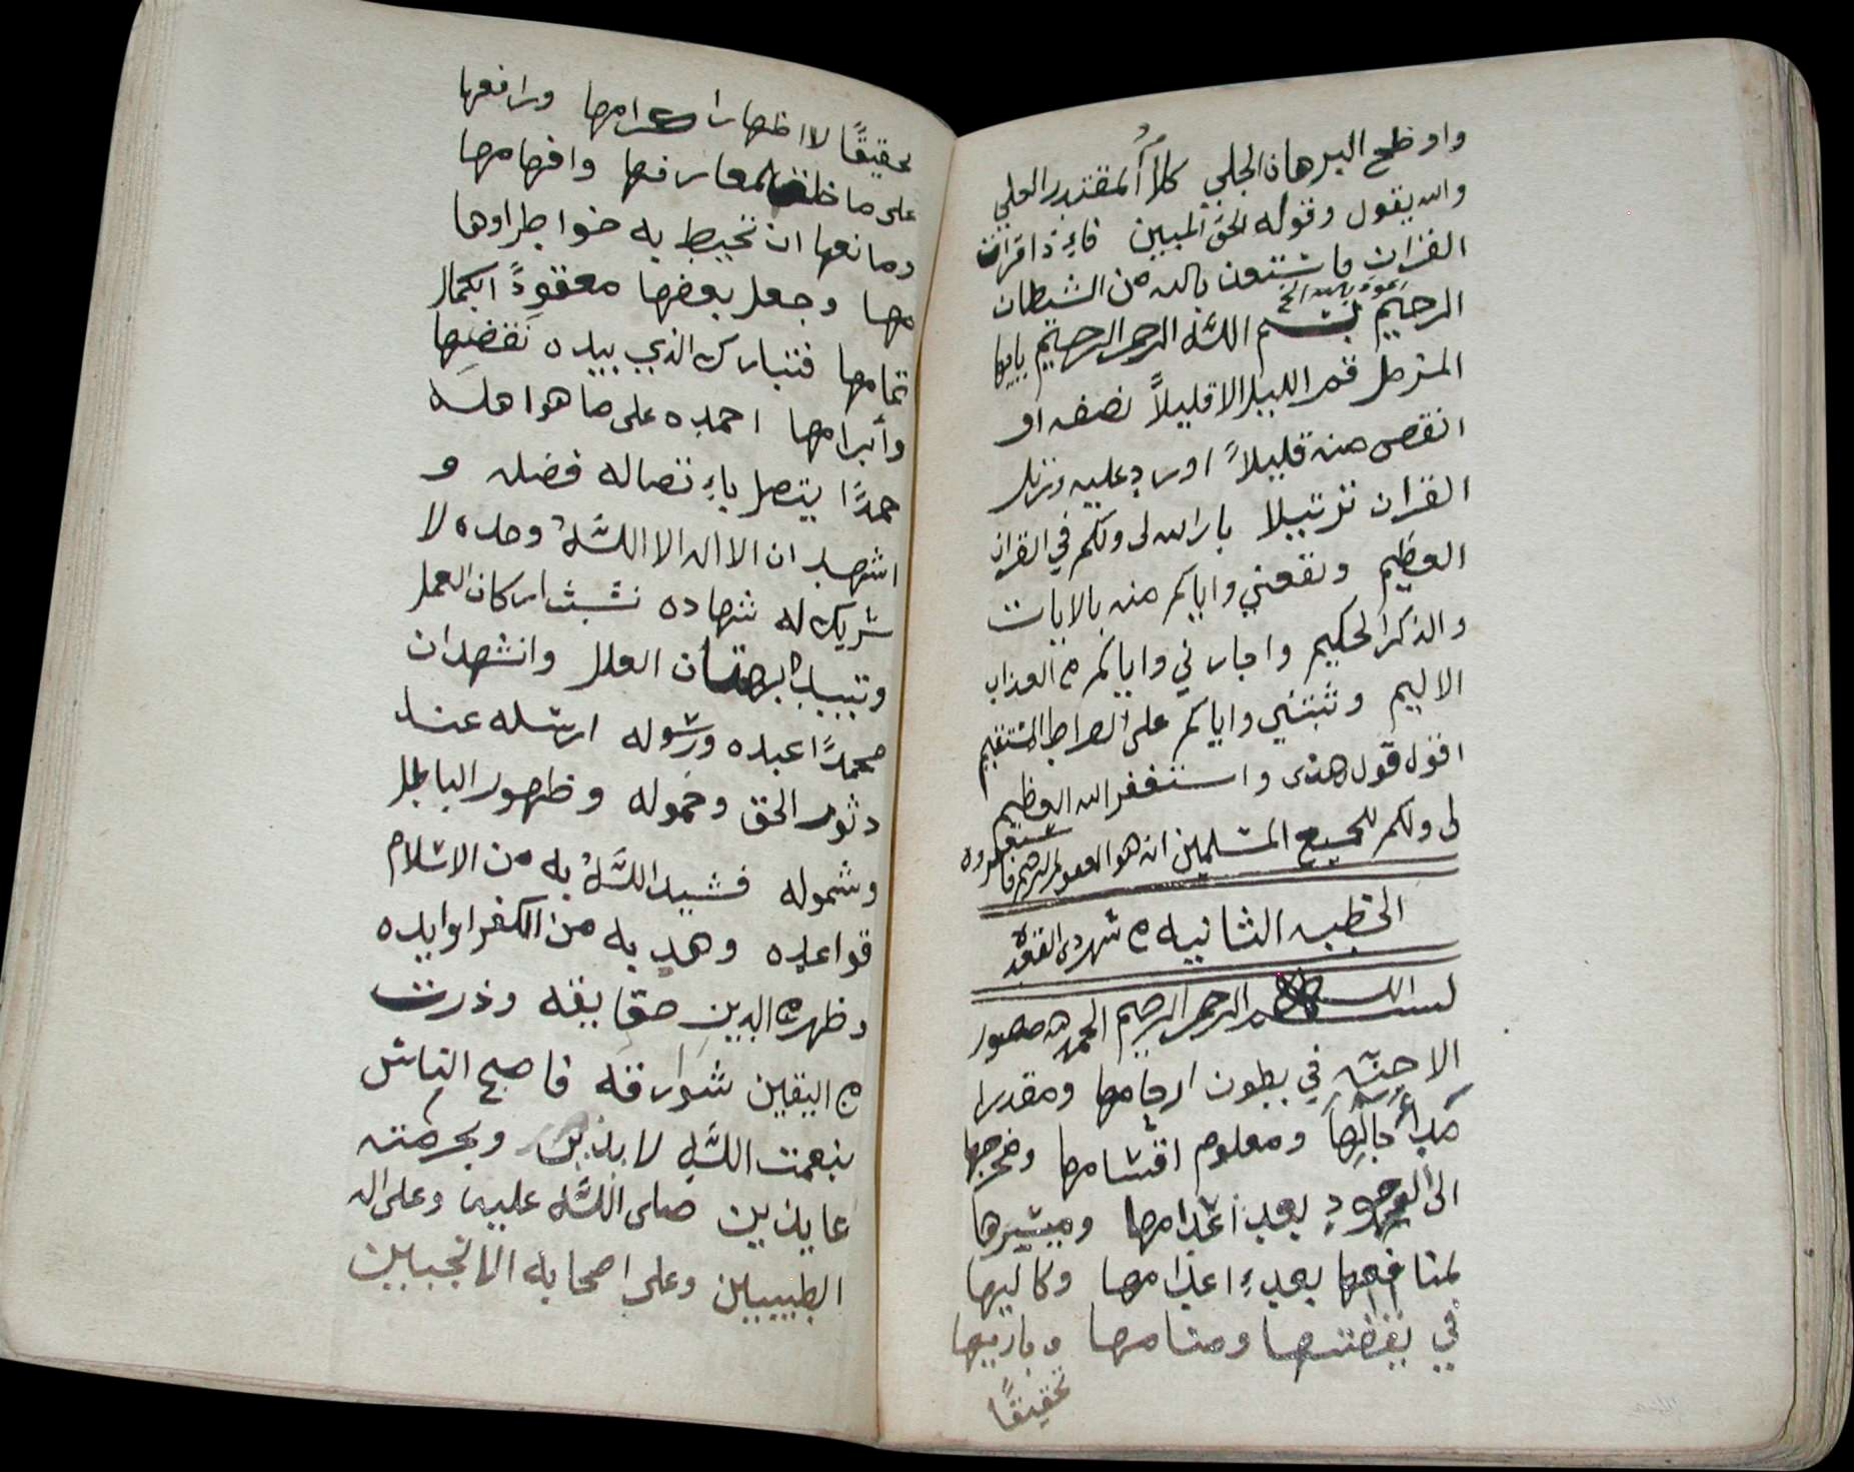 واوضح البرهان الجلي كلاأُ المقتدر العلي
والله يقول وقوله الحق المبين فاءِذا قرات
القران فاستعن بالله من الشيطان
الرحيم بسم الله الرحمن الرحيم ياايها
المزمل قم الليل الا قليلاً نصفه او
انقص منه قليلاً او زد عليه ورتل
القران ترتيلا بارالله لى ولكم في القران
العظيم ونفعني واياكم منه بالايات
والذكر الحكيم واجارني واياكم من العذاب
الاليم وثبتني واياكم على الصراط المستقيم
اقول قول هذى واستغفر الله العظيم
لى ولكم لجميع المسلمين انه هو الغفور الرحيم فاستغفروه
الخطبه الثانيه من شهر ذى القعده
بسم الله الرحمن الرحيم الحمد لله مصور
الاجنّه في بطون ارحامها ومقدرا
آجالِهاَ ومعلوم اقسامها ومخرجها
الى الوجودِ بعد اعدامها وميسرها
لمنافعها بعدءِ اعدامها وكاليها
في يقضتها ومنامها وباريها
تحقيقًا
تحقيقًا لا اظهارا امها ورافعها
على ما خلق لمعارفها وافهامها
ومانعها ان تحيط به خواطر اوها
مها وجعل بعضها معقودً ابكمال
تمامها فتبارك الذي بيده نقضها
وأبرامها احمده على ما هو اهله
حمدًا يتصل باءِتصاله فضله و
اشهد ان لااله الا اللَّهُ وحده لا
شريك له شهاده نشبث اركان العمل
وتبيد العلل وانشهد ان
محمدًا عبده ورسوله ارسله عند
دثور الحق وخموله وظهور الباطل
وشموله فشيد اللَّهُ به من الاسلام
قواعده وهد به من الكفر اوابده
وظهر من الدين حقايقه وذرت
من اليقين شوارقه فاصبح الناس
بنعمت اللَّهِ لايذين وبحرمته
عايذين صلى اللَّه عليه وعلى اله
الطيبين وعلى اصحابه الانجبين